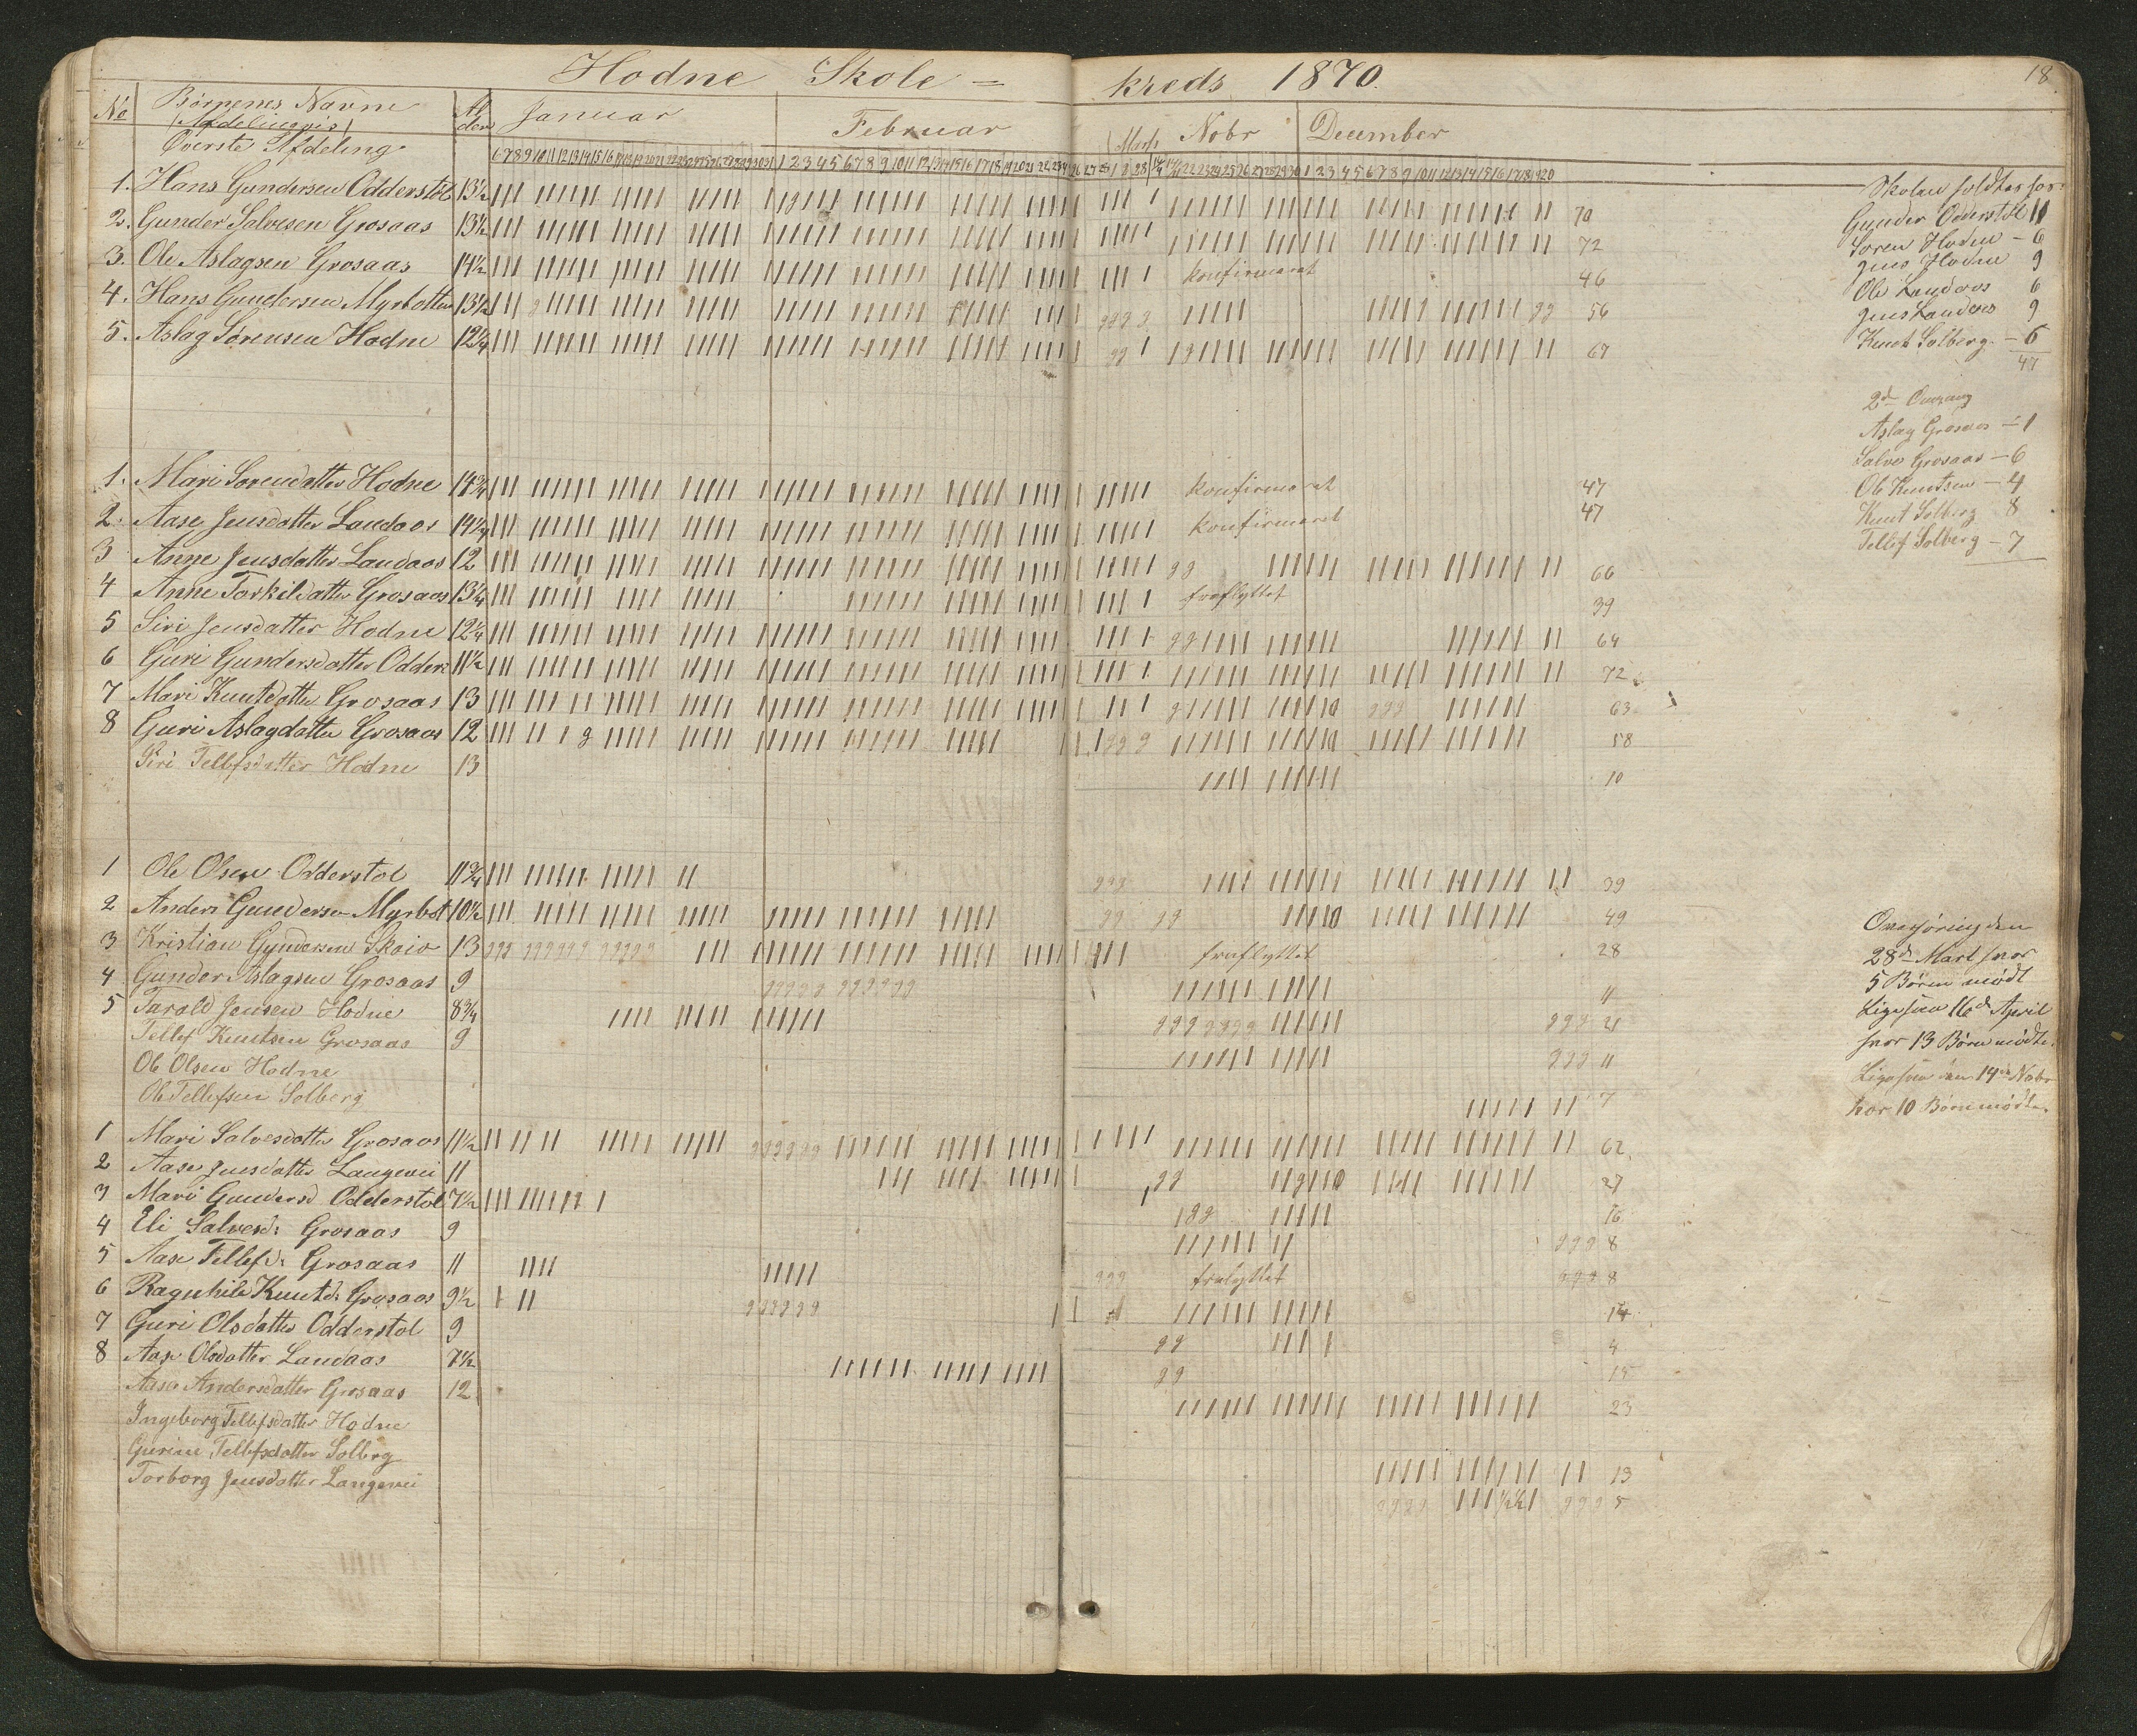 Hodne Skole = kreds 1870.
18
No Børnenes Navne Al der Januar Februar Marts Nobr December
(Afdelingvis)
Øverste Afdeling
6 7 8 9 10 11 12 13 14 15 16 17 18 19 20 21 22 23 24 25 26 27 28 29 30 31 1 2 3 4 5 6 7 8 9 10 11 12 13 14 15 16 17 18 19 20 21 22 23 24 26 27 28 1 2 28 22 23 24 25 26 27 28 29 30 1 2 3 4 5 6 7 8 9 10 11 12 13 14 15 16 17 18 19 20
1. Hans Gundersen Odderstöl 13½ 70
2. Gunder Salvesen Grosaas 13½ 72
3. Ole Aslagsen Grosaas 14½ konfirmeret 46
4. Hans Gundersen Myrbotten 13½ 56
5. Aslag Sørensen Hodne 12¼ 67
1. Mari Sorendatter Hodne 14¾ konfirmeret 47
2. Aase Jensdatter Landaas 14¼ konfirmeret 47
3 Anne Jensdatter Landaas 12 66
4 Anne Torkildatter Grosaas 13¼ fraflyttet 39
5 Siri Jensdatter Hodne 12¼ 64
6 Guri Gundersdatter Odders 11½ 72
7 Mari Knutsdatter Grosaas 13 63
8 Guri Aslagdatter Grosaas 12 58
Siri Tellefsdatter Hodne 13 10
1 Ole Olsen Odderstol 11¾ 39
2 Anders Gundersen Myrbot 10½ 49
3 Kristian Gundersen Skaio 13 fraflyttet 28
4 Gunder Aslagsen Grosaas 9 11
5 Tarald Jensen Hodne 8¾ 21
Tellef Knutsen Grosaas 9 11
Ole Olsen Hodne
Ole Tellefsen Solberg 7
1 Mari Salvesdatter Grosaas 11½ 62
2 Aase Jensdatter Langevei 11 27
3 Mari Gundersd Odderstol 7½ 16
4 Eli Salvesd: Grosaas 9 8
5 Aase Tellefd: Grosaas 11 fraflyttet 8
6 Ragnhild Knutd: Grosaas 9½ 14
7 Guri Olsdatter Odderstol 9 4
8 Aase Olsdatter Landaas 7½ 15
Aase Andersdatter Grosaas 12 23
Ingeborg Tellefsdatter Hodne
Gurine Tellefsdatter Solberg 13
Torborg Jensdatter Langevei 5
Skolen holdtes hos:
Gunder Odderstöl 11
Soren Hodne – 6
Jens Hodne 9
Ole Landaas 6
Jens Landaas 9
Knut Solberg – 6
47
2d Omgang
Aslag Grosaas – 1
Salve Grosaas – 6
Ole Knutsen – 4
Knut Solberg 8
Tellef Solberg – 7
28de Mart hvor
5 Børn mødt
Ligesaa 16d April
hvor 13 Børn mødte.
Ligesaa den 14de Nobr
hvor 10 Børn mødte.